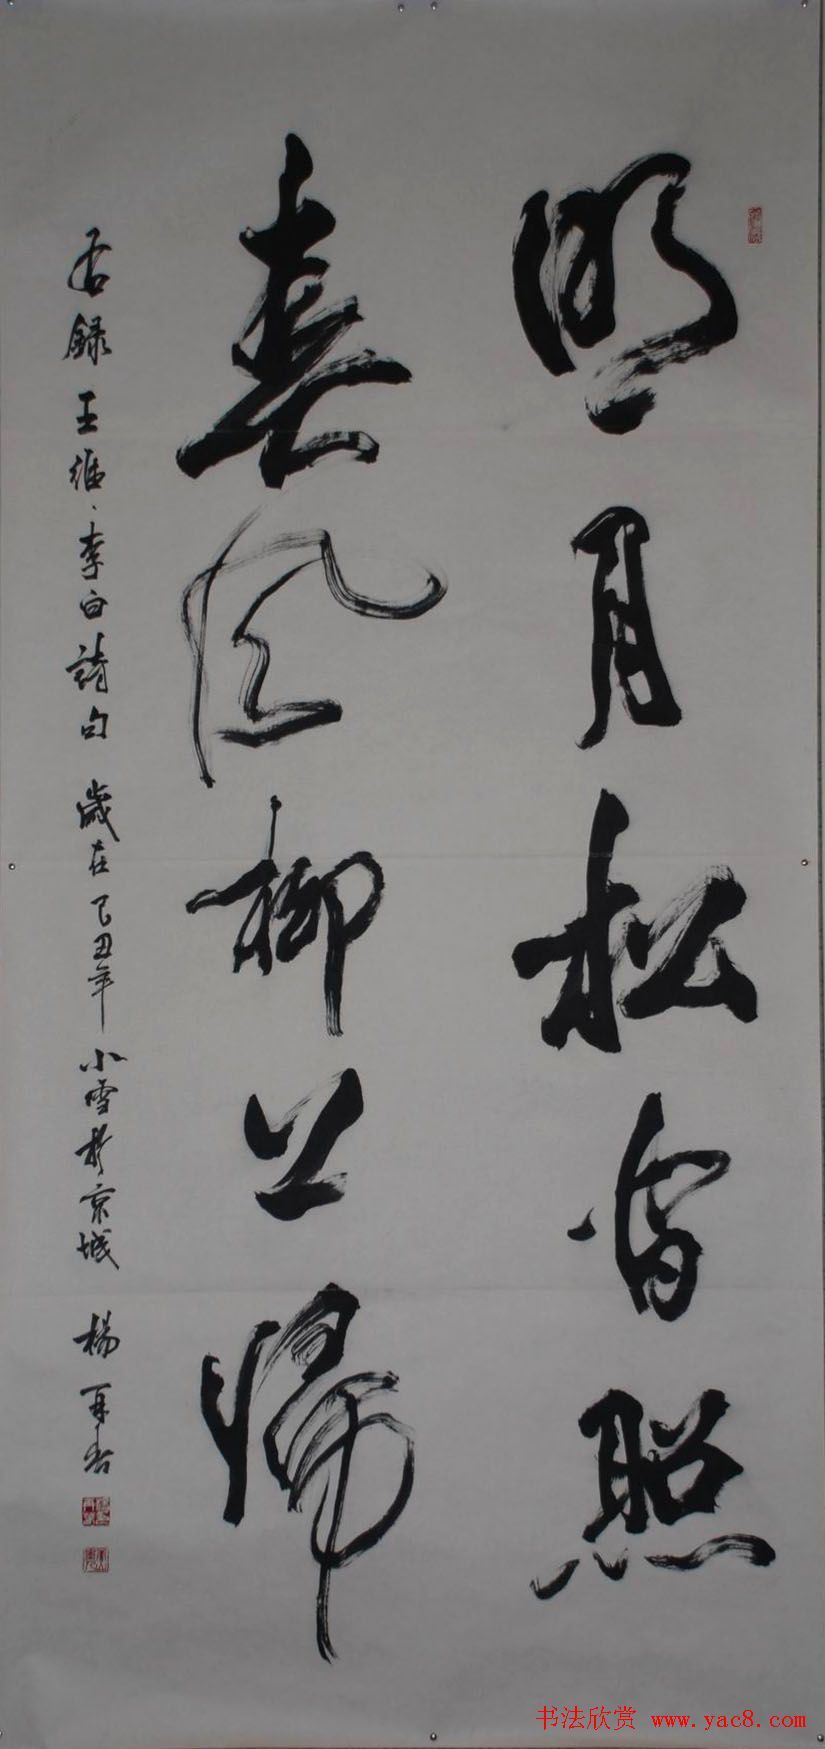 明月松間照
春風柳上歸
右錄王維、李白詩句 歲在己丑年 小雪於京城 楊再春
书法欣赏 www.yac8.com